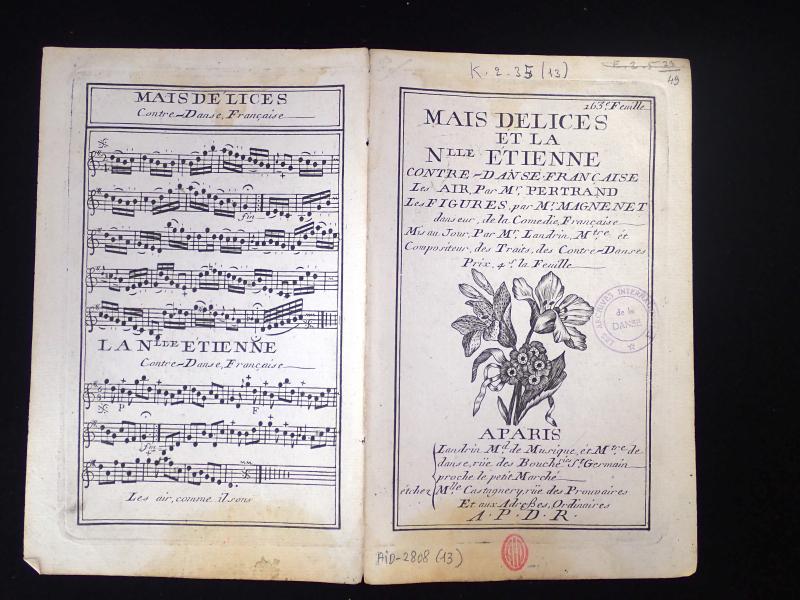 MAIS DELICES
Contre-Danse, Française
fin
LA NLLE ETIENNE
Contre-Danse, Française
P F
fin
Les air, comme il sons
K. 2. 35 (13)
E. 2. 5 29
49
163e. Feuille
MAIS DELICES
ET LA
NLLE ETIENNE
CONTRE-DANSE FRANÇAISE
Les AIR, Par Mr. PERTRAND
Les FIGURES, par Mr. MAGNENET
danseur, de la Comedie, Française
Mis au Jour, Par Mr. Landrin, Mtre et
Compositeur, des Traits, des Contre-Danses
Prix, 4 s. la Feuille
LES ARCHIVES INTERNATIONALES
de la
DANSE
A PARIS
Landrin Md de Musique, et Mtre de
danse, rüe des Boucheries St. Germain
proche le petit Marché
et chez Mlle Castagnery, rüe des Prouvaires
Et aux Adreßes, Ordinaires
A. P. D. R.
AID-2808 (13)